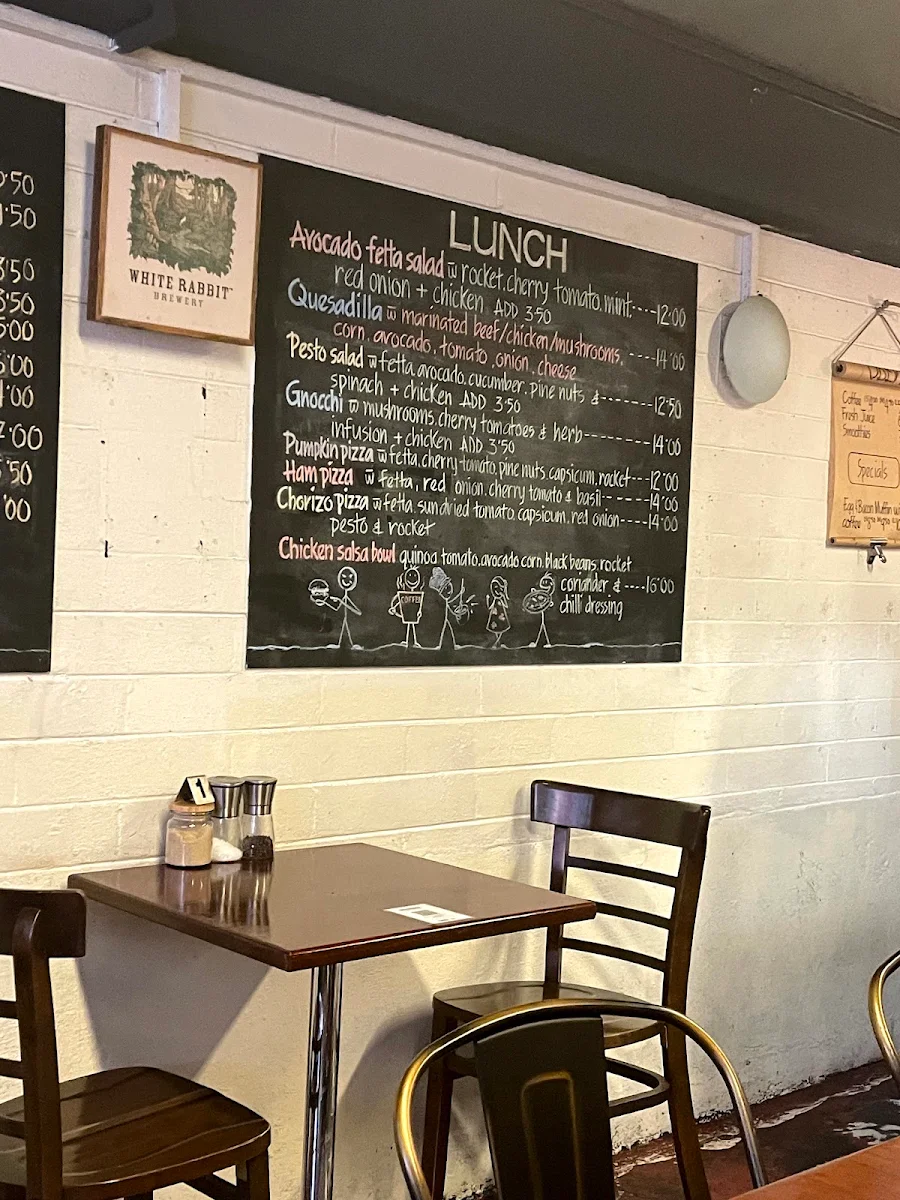 0·50
1·50
3·50
8·50
5·00
5·00
1·00
2·00
5·50
·00
WHITE RABBIT
BREWERY
LUNCH
Avocado fetta salad w̄ rocket.cherry tomato.mint:----12:00
red onion + chicken ADD 3·50
Quesadilla w̄ marinated beef/chicken/mushrooms. ----14·00
corn.avocado.tomato.onion.cheese
Pesto salad w̄ fetta.avocado.cucumber.pine nuts &------12:50
spinach + chicken ADD 3·50
Gnocchi w̄ mushrooms.cherry tomatoes & herb---------14·00
infusion + chicken ADD 3·50
Pumpkin pizza w̄ fetta.cherry tomato.pine nuts.capsicum.rocket---12·00
Ham pizza w̄ fetta.red onion.cherry tomato & basil------14·00
Chorizo pizza w̄ fetta.sundried tomato.capsicum.red onion----14·00
pesto & rocket
Chicken salsa bowl quinoa tomato.avocado corn.black beans.rocket
coriander & ----16:00
chilli dressing
COFFEE
1
Coffee
Fresh Juice
Smoothies
Specials
Egg & Bacon Muffin
coffee